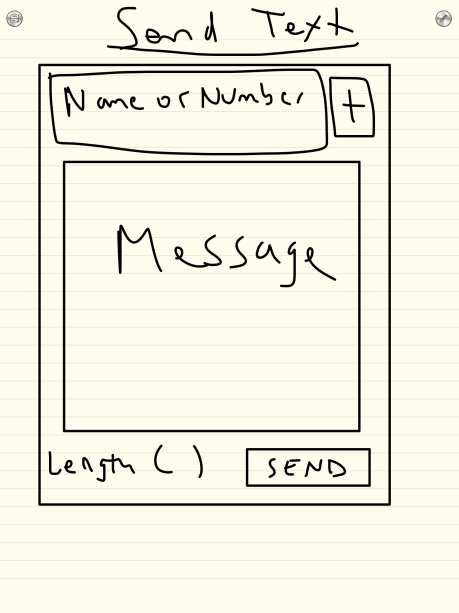 Send Text
Name or Number +
Message
Length ( ) SEND